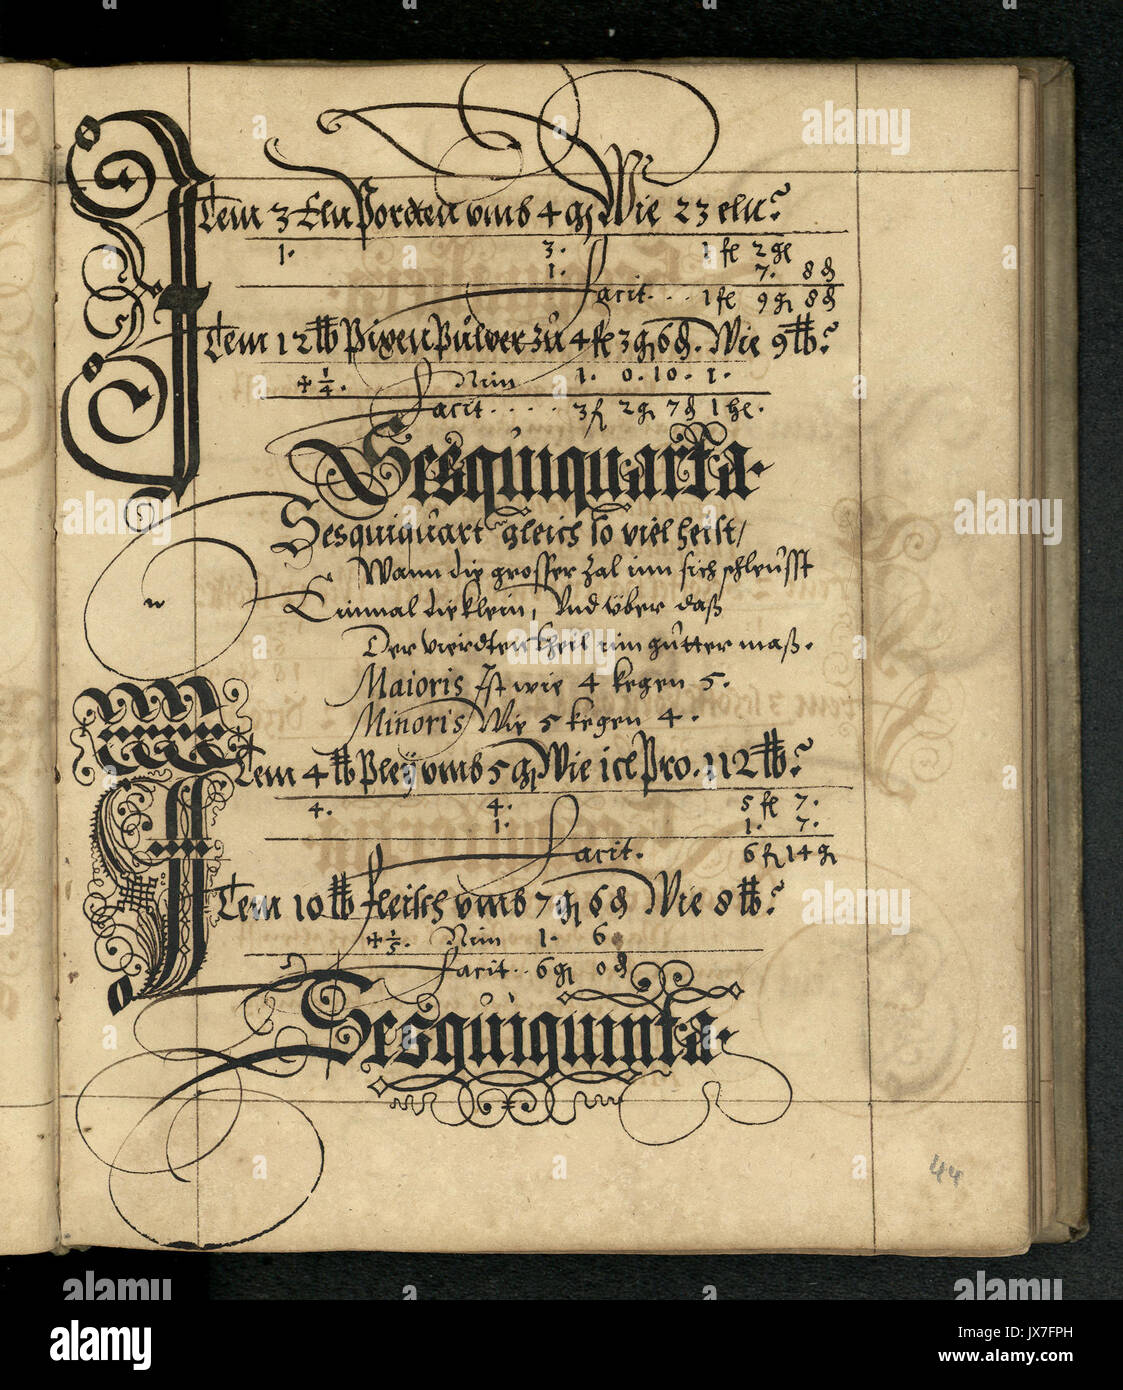 Item 3 Eln Porten umb 4 gl Wie 23 eln?
1. 3. 1 fl 2 gl
1. 7. 8 d
facit . . . 1 fl 9 gl 8 d
Item 12 lb Pixen Pulver zu 4 fl 3 gl 6 d. Wie 9 lb?
+ 1/4. Nim 1. 0. 10. 1.
facit . . . . 3 fl 2 gl 7 d 1 he.
Sesquiquarta.
Sesquiquart gleich so viel heist/
Wann die grosser Zal inn sich schleusst
Einmal die klein, Und über daß
Der vierdten theil inn gutter maß.
Maioris Ist wie 4 kegen 5.
Minoris Wie 5 kegen 4.
Item 4 lb Pley umb 5 gl Wie icl Pro. 112 lb?
4. 4. 5 fl 7.
1. 1. 7.
facit. 6 fl 14 gl
Item 10 lb fleisch umb 7 gl 6 d Wie 8 lb?
+ 1/5. Nim 1. 6
facit . . 6 gl 0 d
Sesquiquinta.
44
alamy
Image ID: JX7FPH
www.alamy.com